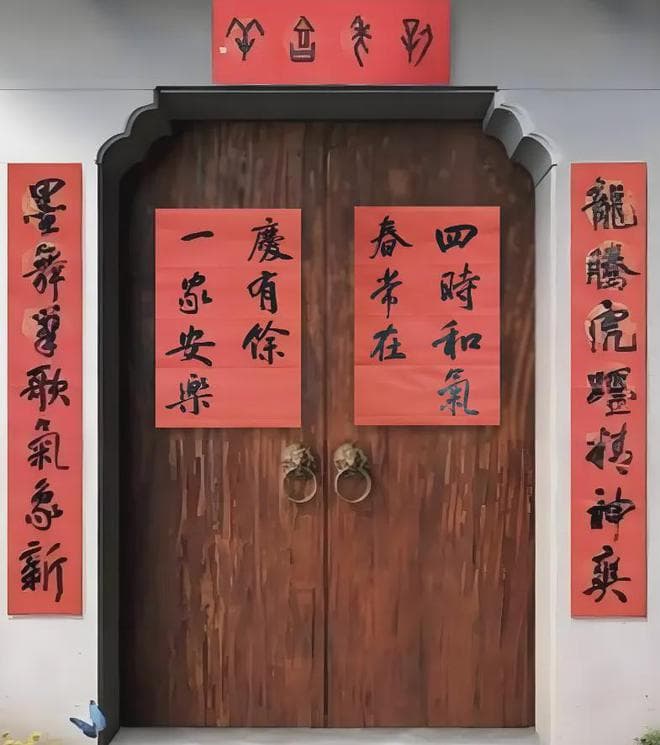 龍騰虎躍精神爽
四時和氣
春常在
一家安樂
慶有餘
墨舞筆歌氣象新